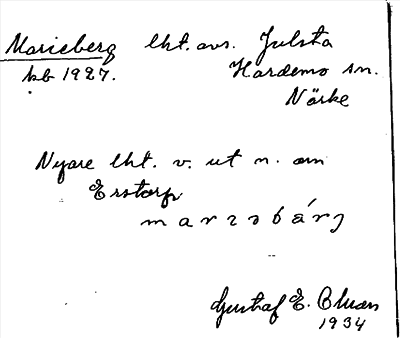 Marieberg lht. avs. Julsta
kb 1927. Hardemo sn.
Närke
Nyare lht. v. ut n. om
Erstorp
Gustaf E.
1934